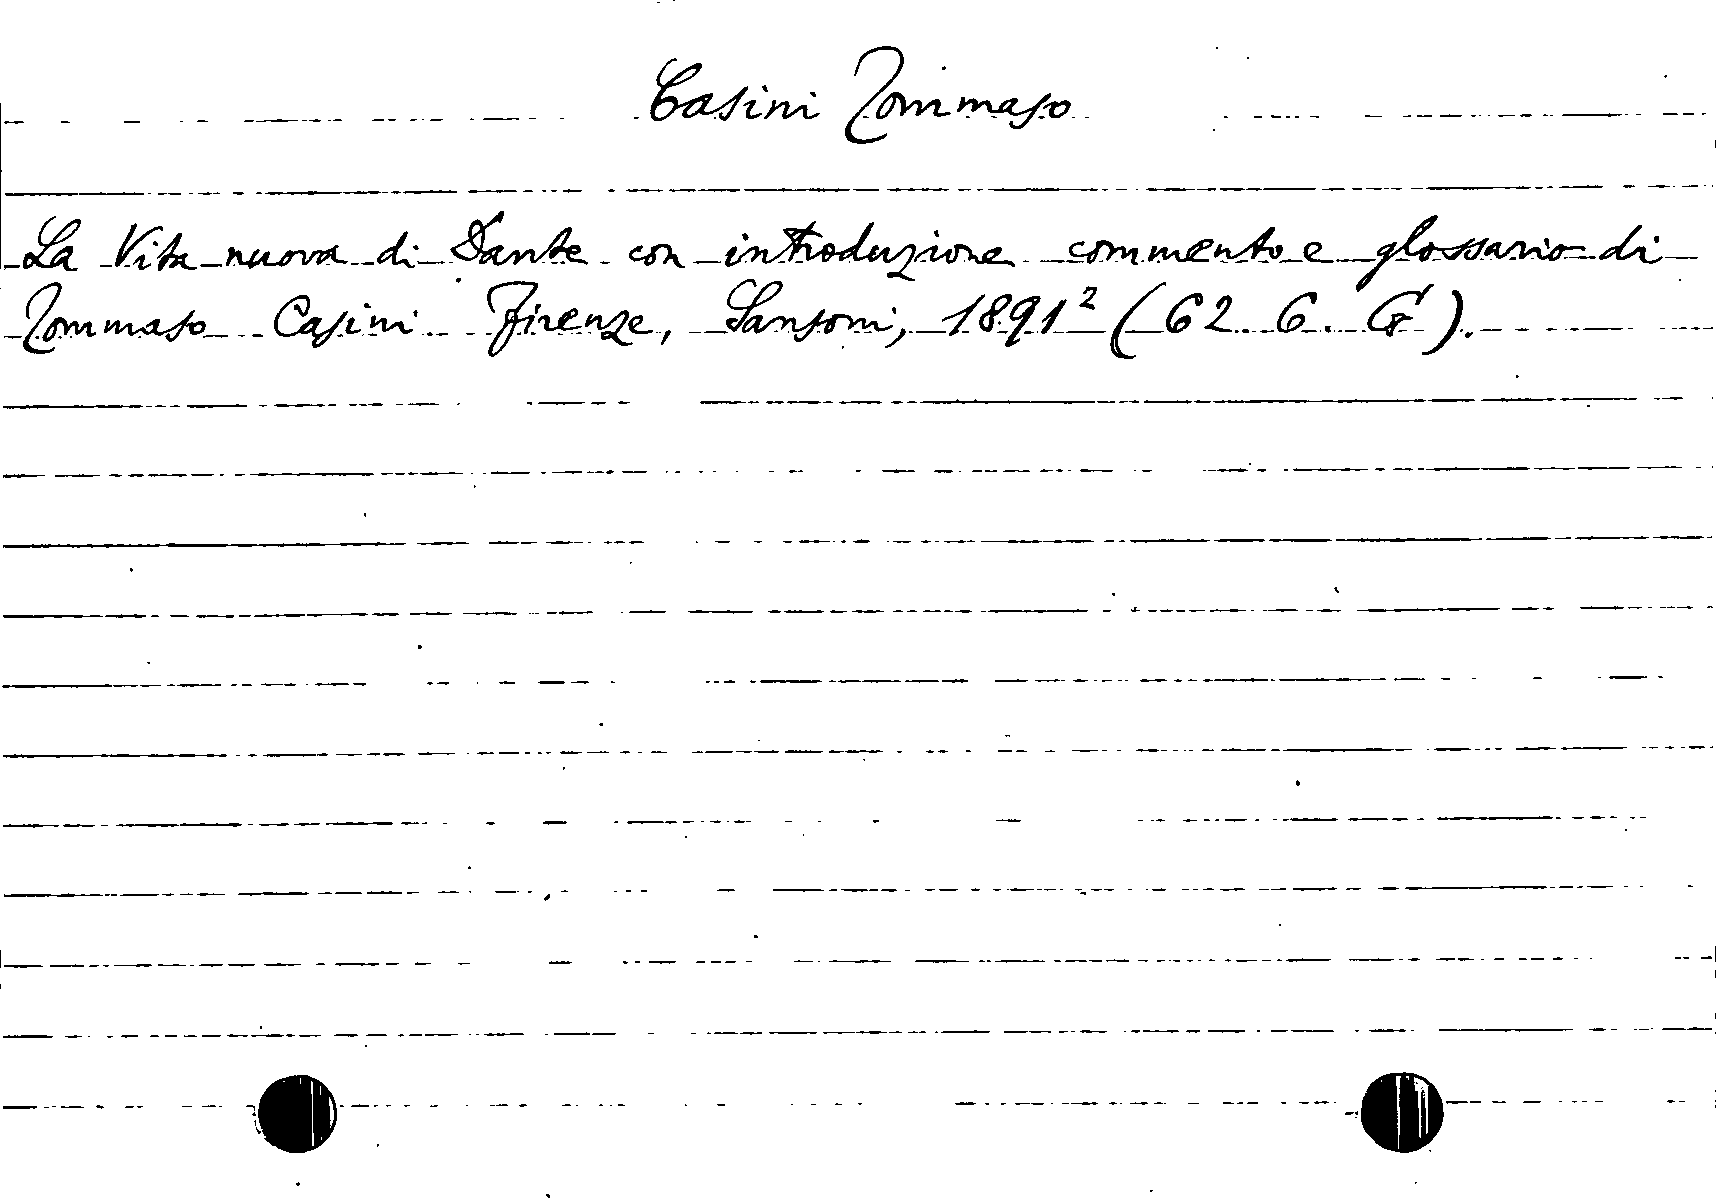 Casini Tommaso
La Vita nuova di Dante con introduzione commento e glossario di
Tommaso Casini Firenze, Sansoni, 1891² (62. 6. G).